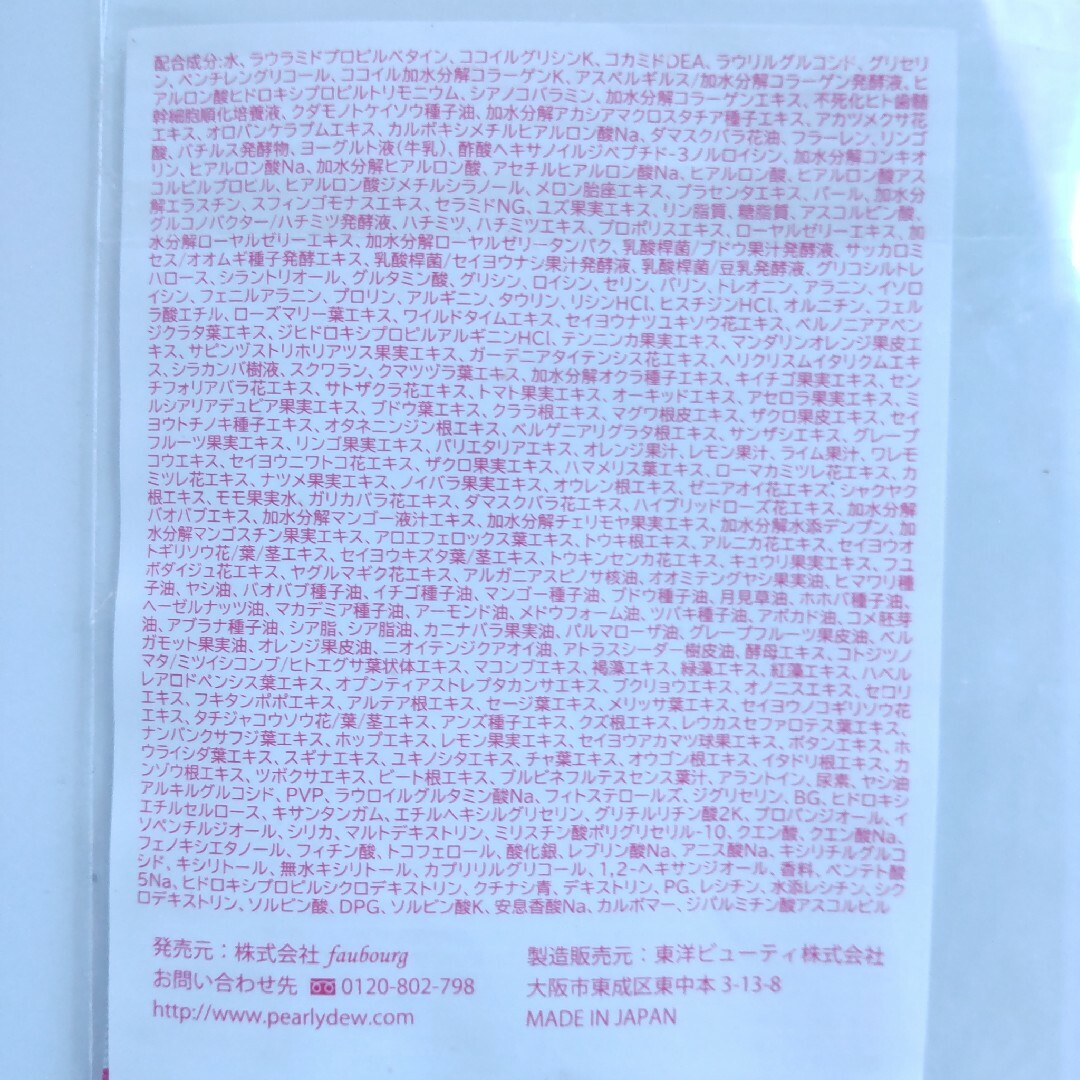 配合成分:水、ラウラミドプロピルベタイン、ココイルグリシンK、コカミドDEA、ラウリルグルコシド、グリセリ
ン、ペンチレングリコール、ココイル加水分解コラーゲンK、アスペルギルス/加水分解コラーゲン発酵液、ヒ
アルロン酸ヒドロキシプロピルトリモニウム、シアノコバラミン、加水分解コラーゲンエキス、不死化ヒト歯髄
幹細胞順化培養液、クダモノトケイソウ種子油、加水分解アカシアマクロスタチア種子エキス、アカツメクサ花
エキス、オロバンケラプムエキス、カルボキシメチルヒアルロン酸Na、ダマスクバラ花油、フラーレン、リンゴ
酸、バチルス発酵物、ヨーグルト液(牛乳)、酢酸ヘキサノイルジペプチド-3ノルロイシン、加水分解コンキオ
リン、ヒアルロン酸Na、加水分解ヒアルロン酸、アセチルヒアルロン酸Na、ヒアルロン酸、ヒアルロン酸アス
コルビルプロピル、ヒアルロン酸ジメチルシラノール、メロン胎座エキス、プラセンタエキス、パール、加水分
解エラスチン、スフィンゴモナスエキス、セラミドNG、ユズ果実エキス、リン脂質、糖脂質、アスコルビン酸、
グルコノバクター/ハチミツ発酵液、ハチミツ、ハチミツエキス、プロポリスエキス、ローヤルゼリーエキス、加
水分解ローヤルゼリーエキス、加水分解ローヤルゼリータンパク、乳酸桿菌/ブドウ果汁発酵液、サッカロミ
セス/オオムギ種子発酵エキス、乳酸桿菌/セイヨウナシ果汁発酵液、乳酸桿菌/豆乳発酵液、グリコシルトレ
ハロース、シラントリオール、グルタミン酸、グリシン、ロイシン、セリン、バリン、トレオニン、アラニン、イソロ
イシン、フェニルアラニン、プロリン、アルギニン、タウリン、リシンHCl、ヒスチジンHCl、オルニチン、フェル
ラ酸エチル、ローズマリー葉エキス、ワイルドタイムエキス、セイヨウナツユキソウ花エキス、ベルノニアアペン
ジクラタ葉エキス、ジヒドロキシプロピルアルギニンHCl、テンニンカ果実エキス、マンダリンオレンジ果皮エ
キス、サピンヅストリホリアツス果実エキス、ガーデニアタイテンシス花エキス、ヘリクリスムイタリクムエキ
ス、シラカンバ樹液、スクワラン、クマツヅラ葉エキス、加水分解オクラ種子エキス、キイチゴ果実エキス、セン
チフォリアバラ花エキス、サトザクラ花エキス、トマト果実エキス、オーキッドエキス、アセロラ果実エキス、ミ
ルシアリアデュビア果実エキス、ブドウ葉エキス、クララ根エキス、マグワ根皮エキス、ザクロ果皮エキス、セイ
ヨウトチノキ種子エキス、オタネニンジン根エキス、ベルゲニアリグラタ根エキス、サンザシエキス、グレープ
フルーツ果実エキス、リンゴ果実エキス、パリエタリアエキス、オレンジ果汁、レモン果汁、ライム果汁、ワレモ
コウエキス、セイヨウニワトコ花エキス、ザクロ果実エキス、ハマメリス葉エキス、ローマカミツレ花エキス、カ
ミツレ花エキス、ナツメ果実エキス、ノイバラ果実エキス、オウレン根エキス、ゼニアオイ花エキス、シャクヤク
根エキス、モモ果実水、ガリカバラ花エキス、ダマスクバラ花エキス、ハイブリッドローズ花エキス、加水分解
バオバブエキス、加水分解マンゴー液汁エキス、加水分解チェリモヤ果実エキス、加水分解水添デンプン、加
水分解マンゴスチン果実エキス、アロエフェロックス葉エキス、トウキ根エキス、アルニカ花エキス、セイヨウオ
トギリソウ花/葉/茎エキス、セイヨウキズタ葉/茎エキス、トウキンセンカ花エキス、キュウリ果実エキス、フユ
ボダイジュ花エキス、ヤグルマギク花エキス、アルガニアスピノサ核油、オオミテングヤシ果実油、ヒマワリ種
子油、ヤシ油、バオバブ種子油、イチゴ種子油、マンゴー種子油、ブドウ種子油、月見草油、ホホバ種子油、
ヘーゼルナッツ油、マカデミア種子油、アーモンド油、メドウフォーム油、ツバキ種子油、アボカド油、コメ胚芽
油、アブラナ種子油、シア脂、シア脂油、カニナバラ果実油、パルマローザ油、グレープフルーツ果皮油、ベル
ガモット果実油、オレンジ果皮油、ニオイテンジクアオイ油、アトラスシーダー樹皮油、酵母エキス、コトジツノ
マタ/ミツイシコンブ/ヒトエグサ葉状体エキス、マコンブエキス、褐藻エキス、緑藻エキス、紅藻エキス、ハベル
レアロドペンシス葉エキス、オプンティアストレプタカンサエキス、ブクリョウエキス、オノニスエキス、セロリ
エキス、フキタンポポエキス、アルテア根エキス、セージ葉エキス、メリッサ葉エキス、セイヨウノコギリソウ花
エキス、タチジャコウソウ花/葉/茎エキス、アンズ種子エキス、クズ根エキス、レウカスセファロテス葉エキス、
ナンバンクサフジ葉エキス、ホップエキス、レモン果実エキス、セイヨウアカマツ球果エキス、ボタンエキス、ホ
ウライシダ葉エキス、スギナエキス、ユキノシタエキス、チャ葉エキス、オウゴン根エキス、イタドリ根エキス、カ
ンゾウ根エキス、ツボクサエキス、ビート根エキス、ブルビネフルテスセンス葉汁、アラントイン、尿素、ヤシ油
アルキルグルコシド、PVP、ラウロイルグルタミン酸Na、フィトステロールズ、ジグリセリン、BG、ヒドロキシ
エチルセルロース、キサンタンガム、エチルヘキシルグリセリン、グリチルリチン酸2K、プロパンジオール、イ
ソペンチルジオール、シリカ、マルトデキストリン、ミリスチン酸ポリグリセリル-10、クエン酸、クエン酸Na、
フェノキシエタノール、フィチン酸、トコフェロール、酸化銀、レブリン酸Na、アニス酸Na、キシリチルグルコ
シド、キシリトール、無水キシリトール、カプリリルグリコール、1,2-ヘキサンジオール、香料、ペンテト酸
5Na、ヒドロキシプロピルシクロデキストリン、クチナシ青、デキストリン、PG、レシチン、水添レシチン、シク
ロデキストリン、ソルビン酸、DPG、ソルビン酸K、安息香酸Na、カルボマー、ジパルミチン酸アスコルビル
発売元：株式会社 faubourg
お問い合わせ先 0120-802-798
http://www.pearlydew.com
製造販売元：東洋ビューティ株式会社
大阪市東成区東中本 3-13-8
MADE IN JAPAN